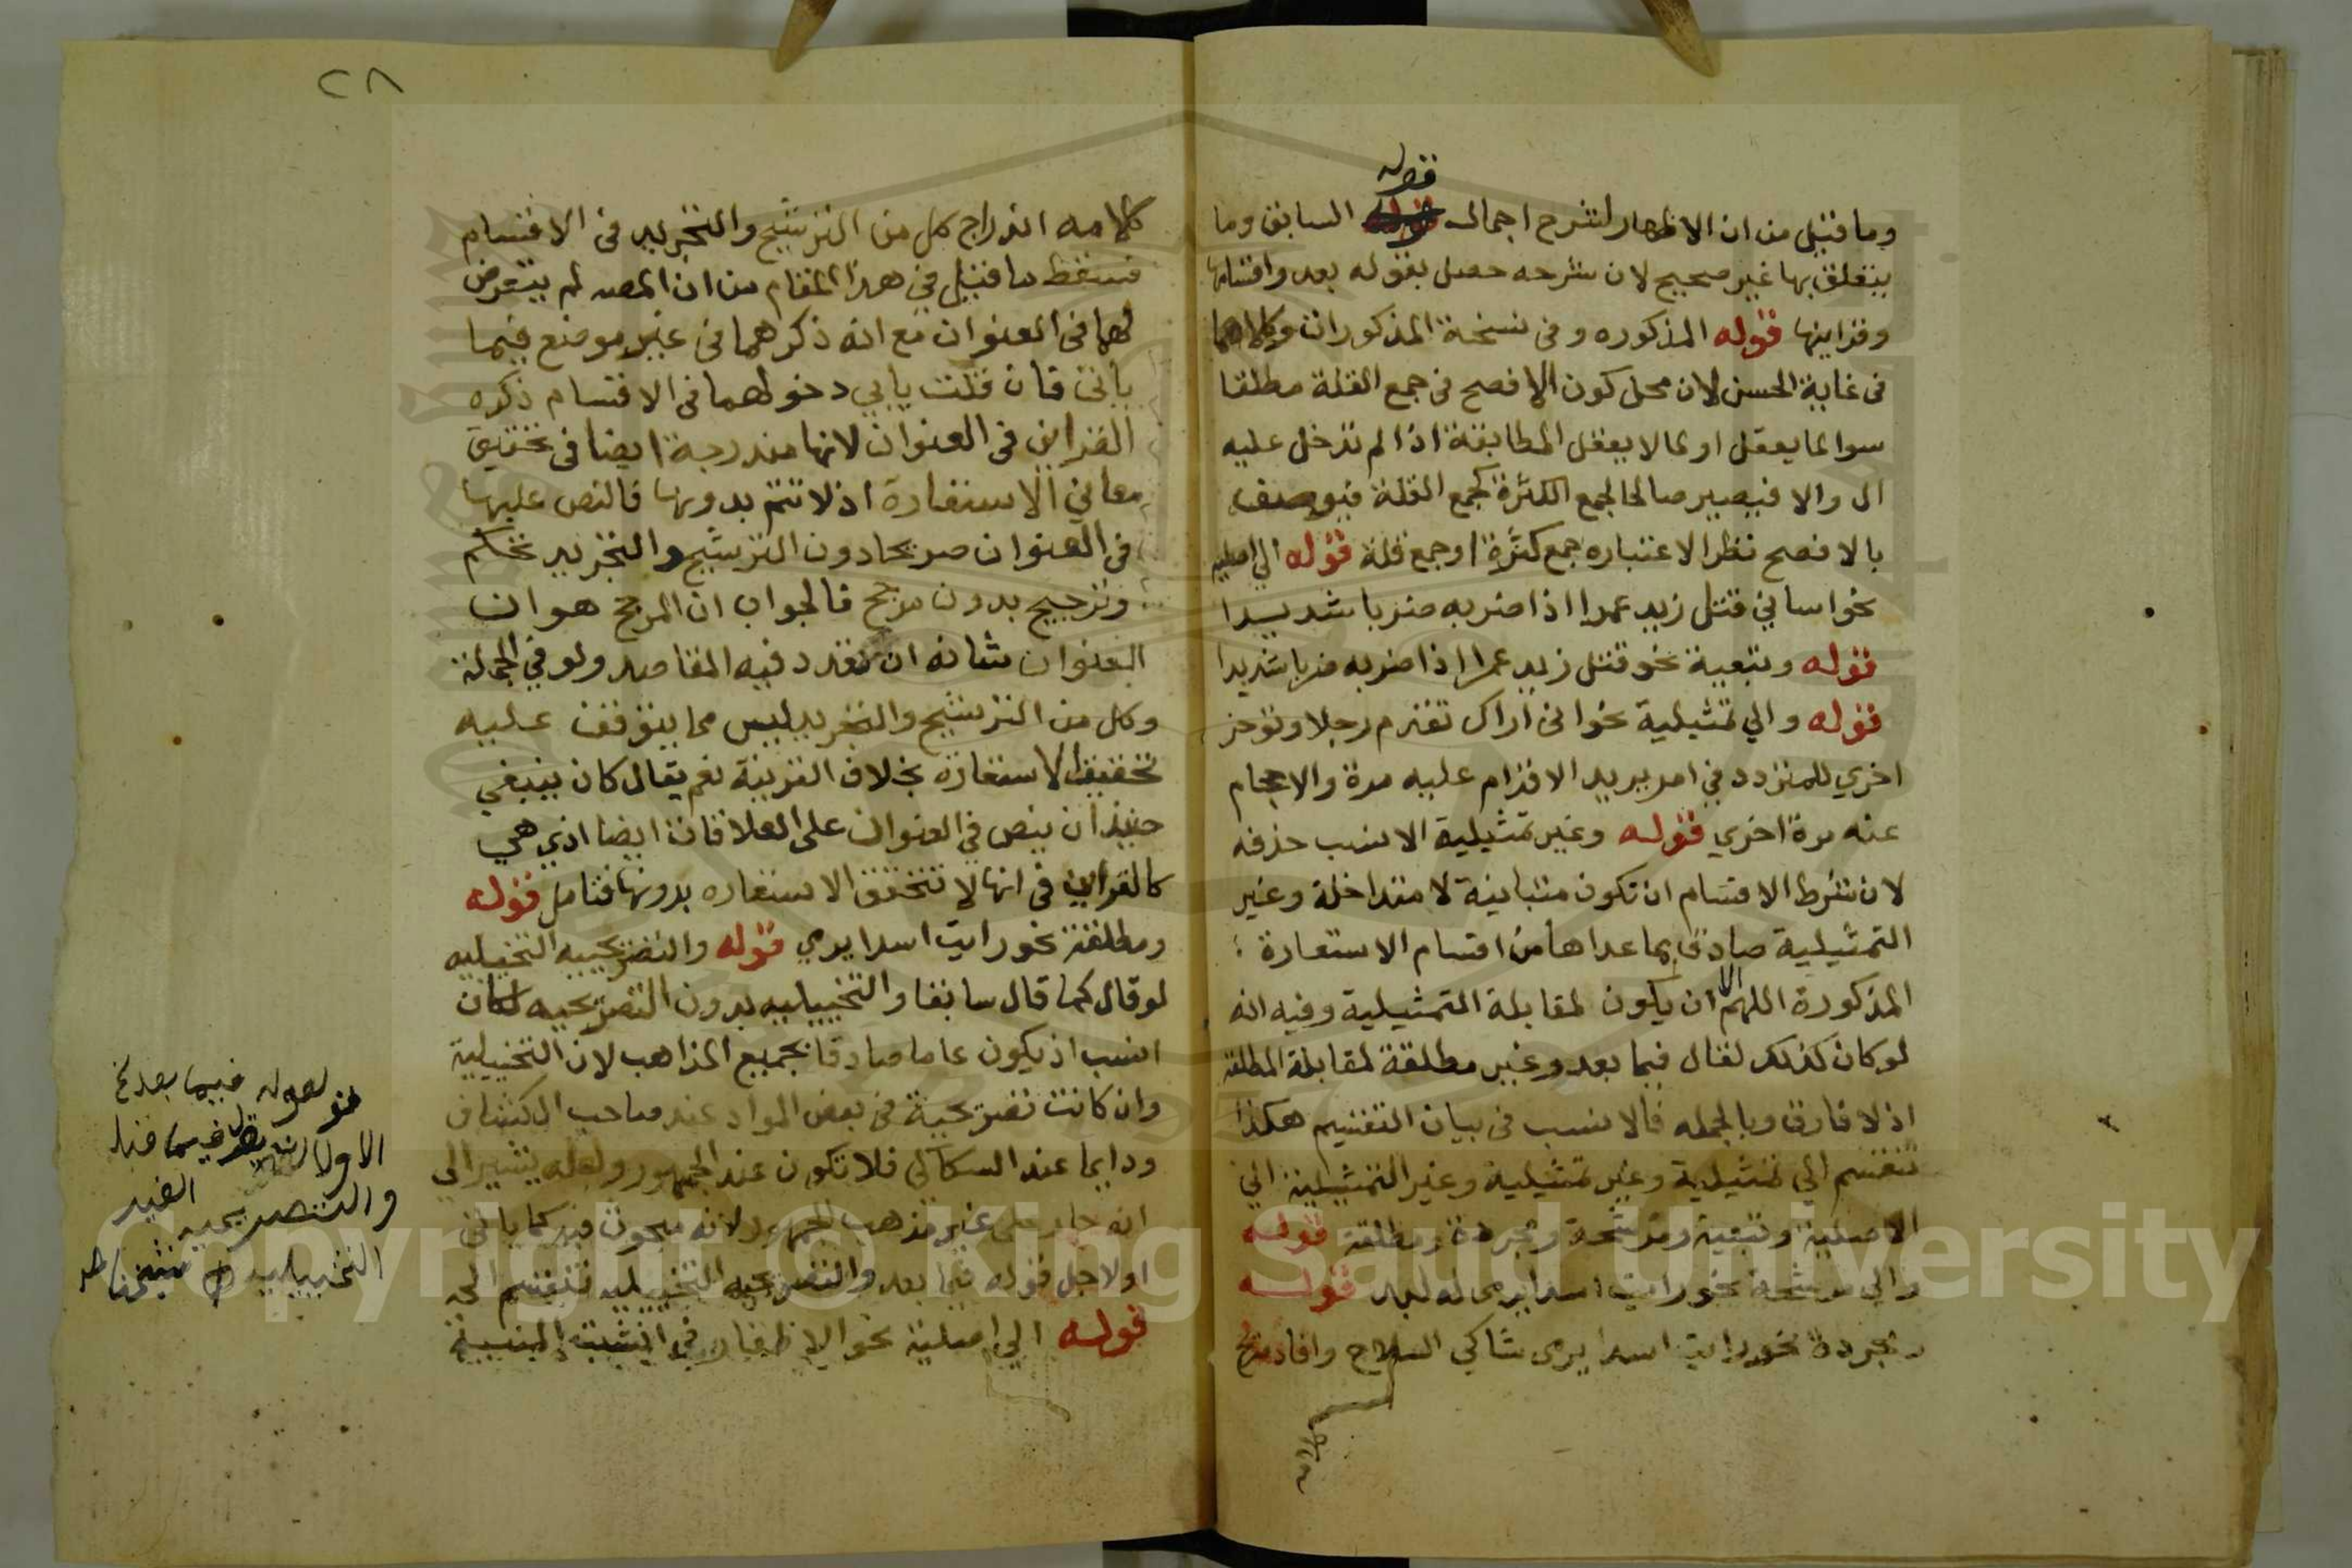 قوله
وما قيل من ان الاظهار لشرح اجمال السابق وما
يتعلق بها غير صحيح لان شرحه حصل بقوله بعد واقسامها
وقراينها قوله المذكوره وفى نسخة المذكورات وكلاهما
فى غاية الحسن لان محل كون الافصح فى جمع القلة مطلقا
سوا لما يعقل او لما لا يعقل المطابقة اذا لم تدخل عليه
ال والا فيصير صالحا لجمع الكثرة كجمع القلة فيوصف
بالافصح نظرا لاعتباره جمع كثرة او جمع قلة قوله الي اصلية
نحو اساني قتل زيد عمرا اذا ضربه ضربا شديدا
قوله وتبعية نحو قتل زيد عمرا اذا ضربه ضربا شديدا
قوله والي تمثيلية نحو انى اراك تقدم رجلا وتوخر
اخري للمتردد في امر يريد الاقدام عليه مرة والاحجام
عنه مرة اخري قوله وغير تمثيلية الانسب حذفه
لان شرط الاقسام ان تكون متباينة لا متداخلة وغير
التمثيلية صادق بما عداها من اقسام الاستعارة
المذكورة اللهم الا ان يكون لمقابلة التمثيلية وفيه انه
لو كان كذلك لقال فيما بعد وغير مطلقة لمقابلة المطلقة
اذ لا فارق وبالجمله فالانسب فى بيان التقسيم هكذا
تنقسم الي تمثيلية وغير تمثيلية وغير التمثيلية الي
الاصلية وتبعية ومرشحة ومجردة ومطلقة قوله
والي مرشحة نحو رايت اسدا يرمى له لبد قوله
ومجردة نحو رايت اسدا يرى شاكي السلاح وافاد
كلامه
٢٨
كلامه اندراج كل من الترشيح والتجريد فى الاقسام
فسقط ما قيل في هذا المقام من ان المصه لم يتعرض
لهما فى العنوان مع انه ذكرهما فى غير موضع فيما
ياتى فان قلت يابي دخولهما فى الاقسام ذكره
القراين فى العنوان لانها مندرجة ايضا فى تحقيق
معاني الاستعارة اذ لا تتم بدونها فالنص عليها
فى العنوان صريحا دون الترشيح والتجريد تحكم
وترجيح بدون مرجح فالجواب ان المرجح هو ان
العنوان شانه ان تقدر فيه المقاصد ولو في الجملة
وكل من الترشيح والتجريد ليس مما يتوقف عليه
تحقيق الاستعارة بخلاف القرينة نعم يقال كان ينبغي
حينئذ ان ينص في العنوان على العلاقات ايضا اذ هي
كالقراين فى انها لا تتحقق الاستعاره بدونها فتامل قوله
ومطلقة نحو رايت اسدا يرمي قوله والتصريحيه التخييليه
لو قال كما قال سابقا والتخييليه بدون التصريحيه لكان
انسب اذ يكون عاما صادقا بجميع المذاهب لان التخييلية
وان كانت تصريحية فى بعض المواد عند صاحب الكشاف
ودايما عند السكاكي فلا تكون عند الجمهور ولعله يشير الي
انه جار على غير مذهب الجمهور لانه مبحوث فيه كما ياتى
او لاجل قوله فيما بعد والتصريحيه التخييليه تنقسم الخ
قوله الي اصلية نحو الاظفار في انشبت المنية
لقوله فيما بعد نحو
الاولى ان يقول فيما قبل
والتصريحيه
التخييليه